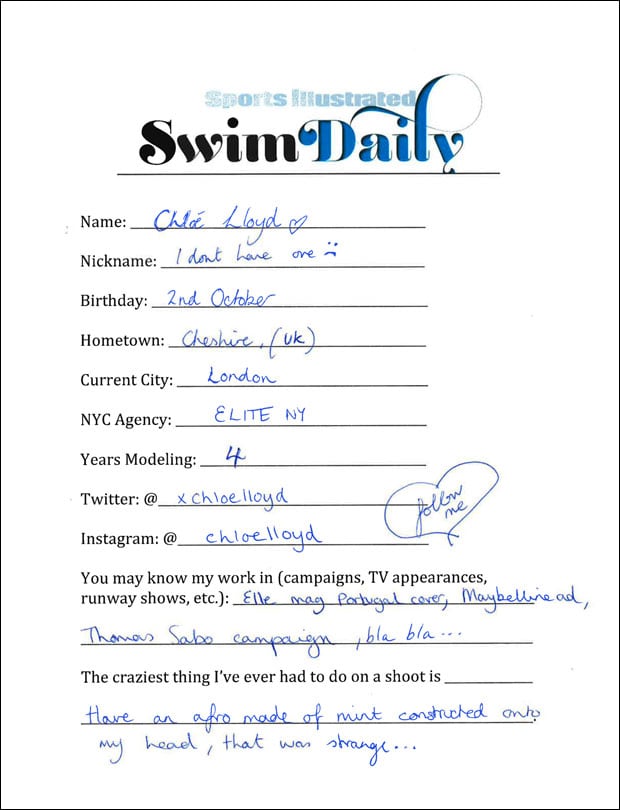 Sports Illustrated
Swim Daily
Name: Chloé Lloyd ♡
Nickname: I dont have one :(
Birthday: 2nd October
Hometown: Cheshire, (UK)
Current City: London
NYC Agency: ELITE NY
Years Modeling: 4
Twitter: @ xchloelloyd
follow
me
Instagram: @ chloelloyd
You may know my work in (campaigns, TV appearances,
runway shows, etc.): Elle mag Portugal cover, Maybelline ad,
Thomas Sabo campaign, bla bla...
The craziest thing I've ever had to do on a shoot is
Have an afro made of mint constructed onto
my head, that was strange...